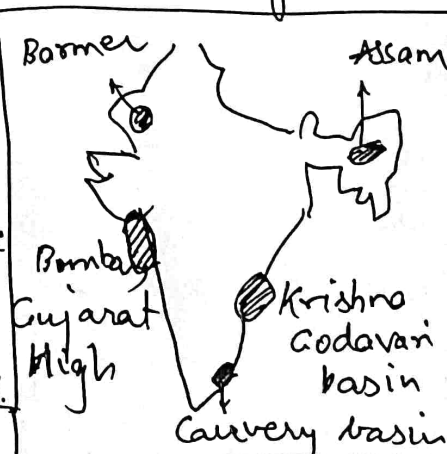 Barmer
Assam
Bombay
Gujarat
High
Krishna
Godavari
basin
Cauvery basin